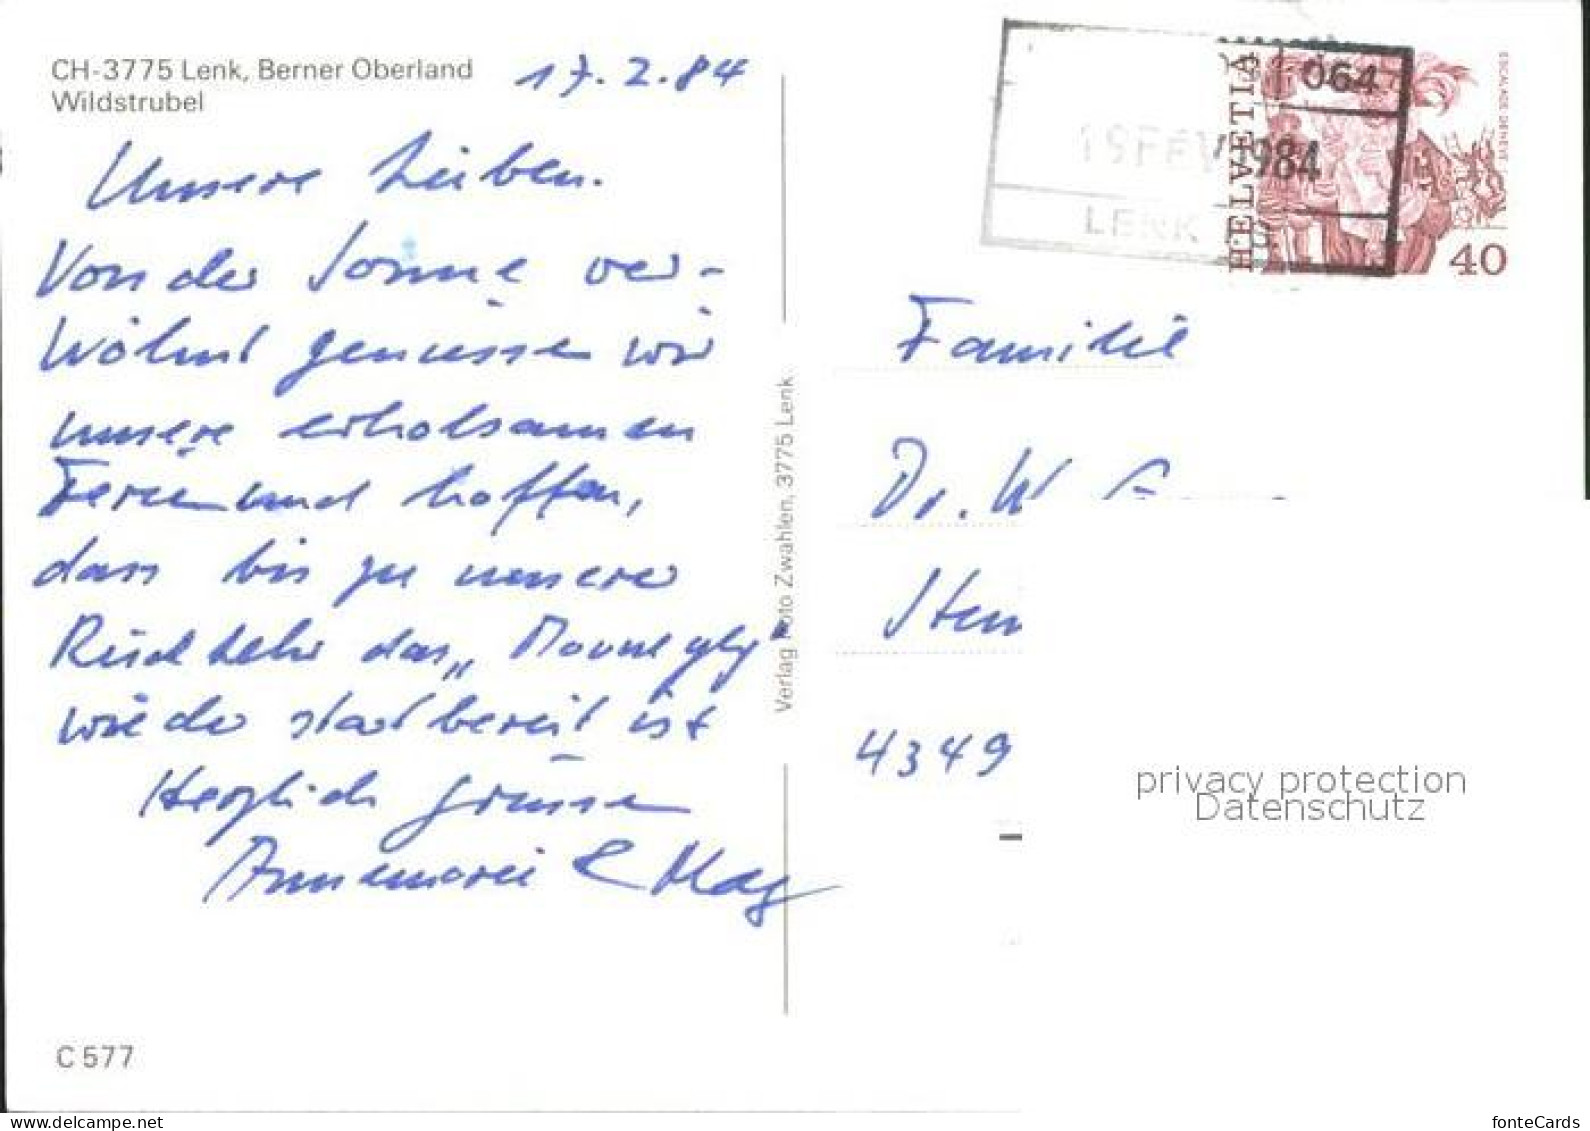 CH-3775 Lenk, Berner Oberland
Wildstrubel
17.2.84
Unsere Lieben.
Von der Sonne ver-
wöhnt geniessen wir
unsere erholsamen
Ferien und hoffen,
dass bis zu unserer
Rückkehr das „
wieder startbereit ist
Herzlich Grüsse
Annemarei &
C 577
Verlag Foto Zwahlen, 3775 Lenk
064
19 FEV 1984
LENK
HELVETIA
ESCALADE GENEVE
40
Familie
Dr. W.
4349
privacy protection
Datenschutz
www.delcampe.net
fonteCards